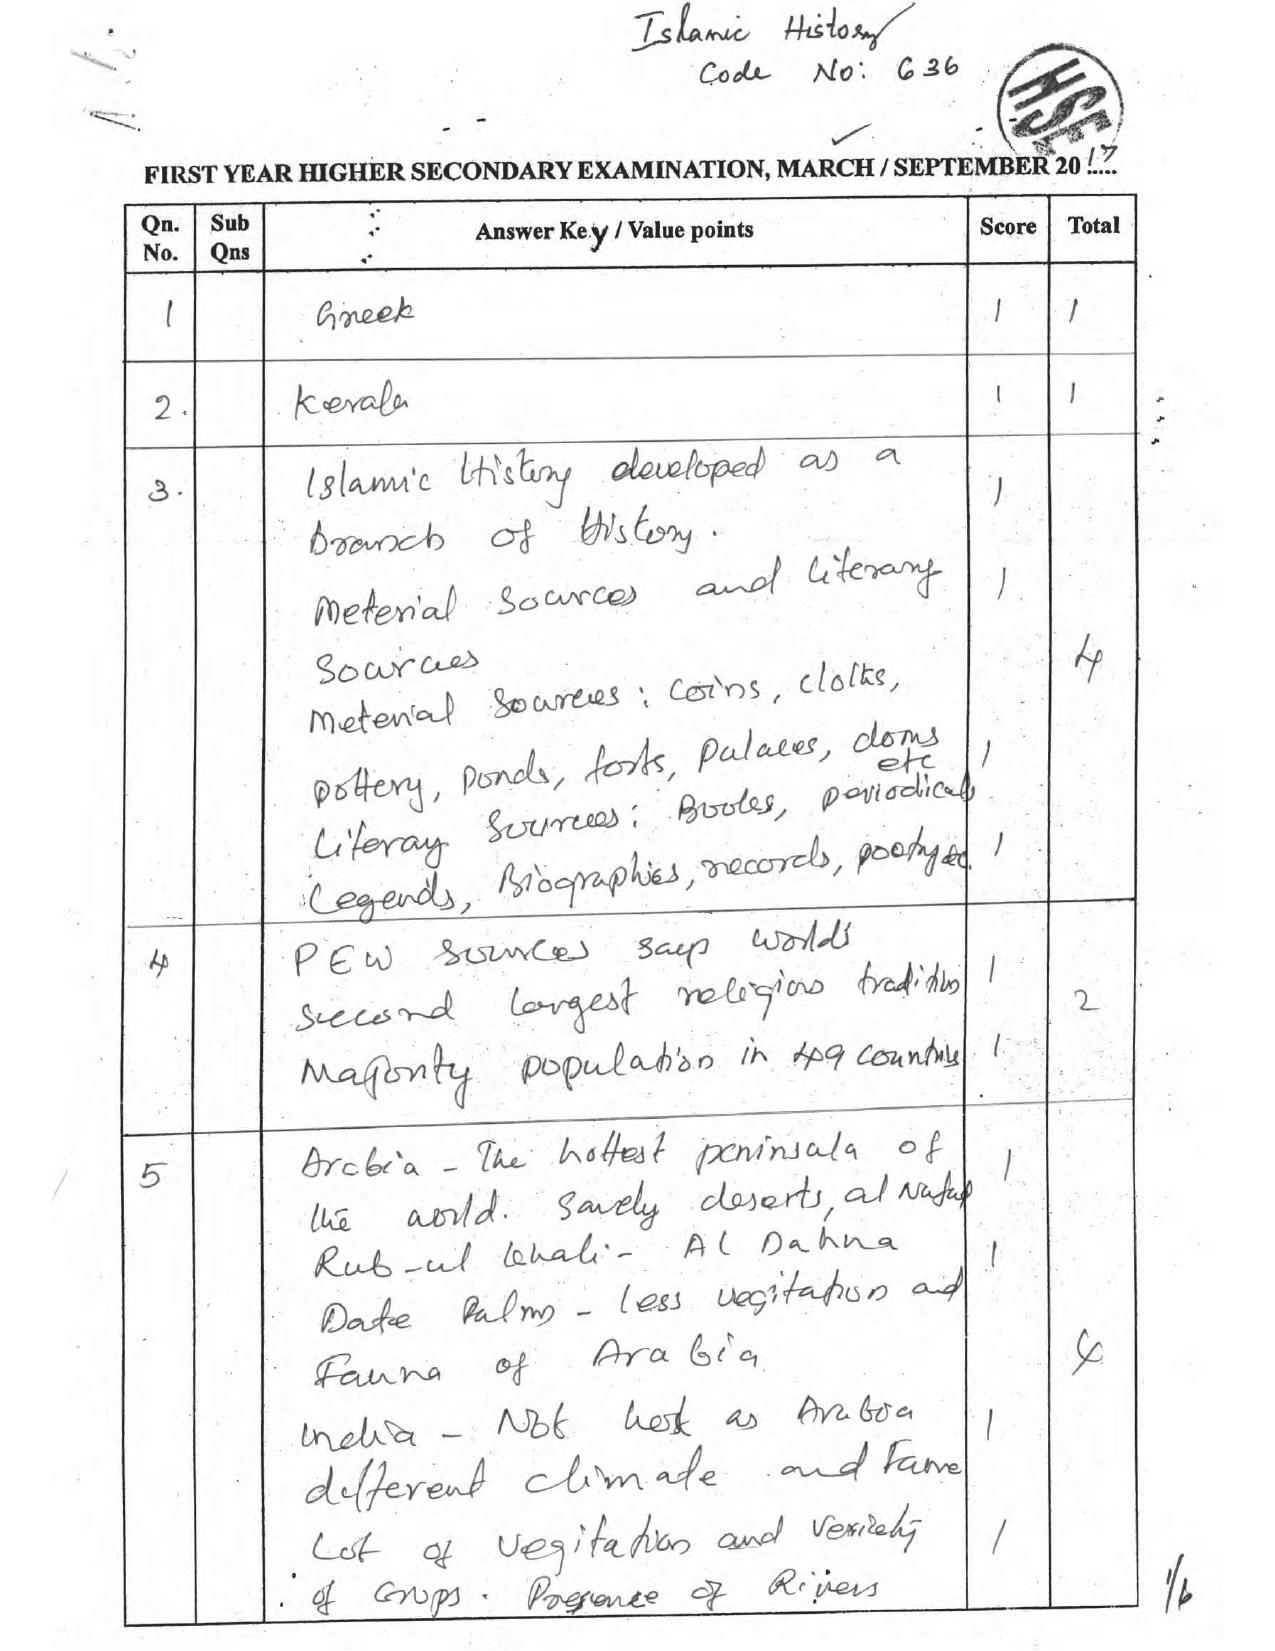 Islamic History
Code No: 636
HSE
FIRST YEAR HIGHER SECONDARY EXAMINATION, MARCH / SEPTEMBER 2017
Qn. No. Sub Qns Answer Key / Value points Score Total
1 Greek 1 1
2. Kerala 1 1
3. Islamic History developed as a 1
branch of History.
Meterial Sources and literary 1
Sources 4
Meterial Sources: Coins, cloths,
pottery, ponds, forts, palaces, doms etc 1
Literay Sources: Books, periodicals
Legends, Biographies, records, poetry etc. 1
4 PEW sources says worlds
second largest religious tradition 1 2
Majority population in 49 countries 1
5 Arabia - The hottest peninsala of 1
the world. deserts, al Nafud
Rub-ul khali - Al Dahna 1
Date Palms - less vegitation and
Fauna of Arabia 4
India - Not hot as Arabia 1
different climate and
Lot of vegitation and 1
of Crops. Presence of Rivers
1/6